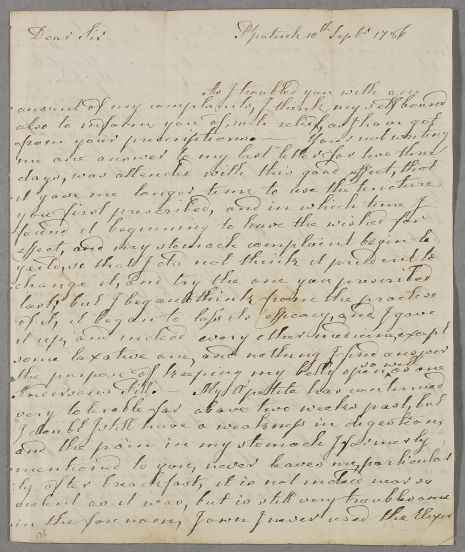 Dear Sir Ptpatrick 10th Septr. 1786
As I troubled you with an
account of my complaints, I think myself bound
also to inform you of such relief, as I have got
from your prescriptions. — Your not writing
me ane answer to my last letter for two three
days, was attended with this good effect, that
it gave me longer time to use the tincture
you first prescribed, and in which time I
found it beginning to have the wished for
effect, and my stomack complaint begin to
yeild, so that I did not think it prudent to
change it, and try the one you prescribed
last, but I began to think from the practise
of it, it began to lose its efficacy, and I gave
it up, and indeed every other medicine, except
some laxative one, and nothing I find answer
the purpose of keeping my belly open so well as one
Andersons Pill. — My appetite has continued
very tolerable for above two weeks past, but
I doubt I still have a weakness in digestion,
and the pain in my stomack I formerly
mentioned to you, never leaves me, particular
ily after breackfast, it is not indeed near so
violent as it was, but is still very troublesome
in the forenoon, I own I never used the Elixer
135